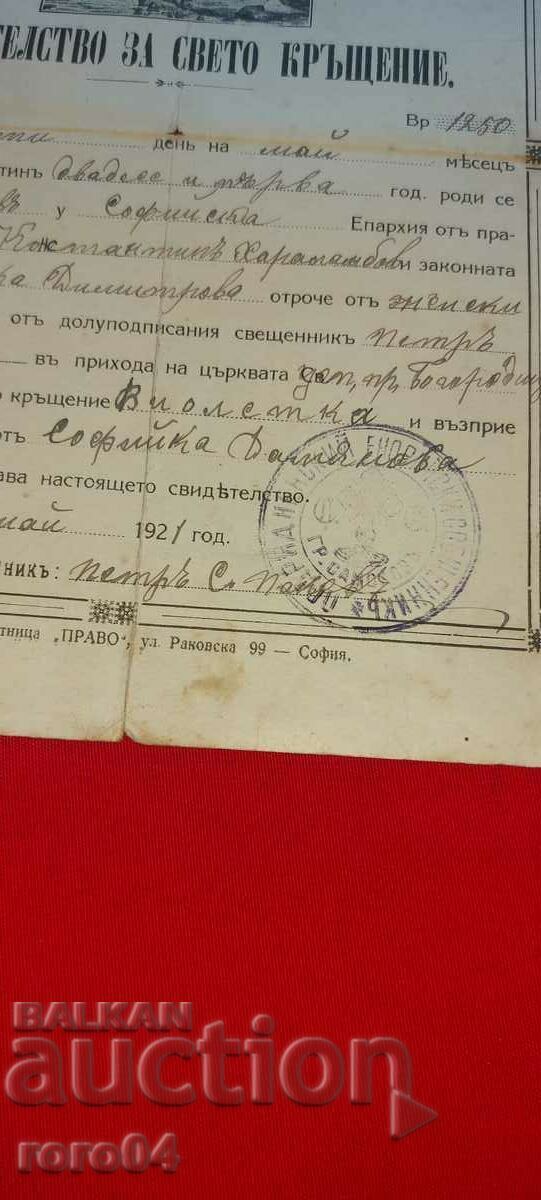 ТЕЛСТВО ЗА СВЕТО КРЪЩЕНИЕ.
Вр 1250
день на май мѣсецъ
тинъ двадесе и първа год. роди се
въ у Софийска Епархия отъ пра-
Константинъ Хараламбов и законната
ка Димитрова отроче отъ женски
отъ долуподписания свещенникъ Петръ
въ прихода на църквата Усп, пр, Богородиц
кръщение Виолетка и възприе
отъ Софийка Дамянова
ава настоящето свидѣтелство.
май 1921 год.
никъ: Петръ С. Попов
ГР. САМО
СВЕЩЕННИКЪ
тница „ПРАВО“, ул. Раковска 99 — София.
BALKAN
auction
roro04